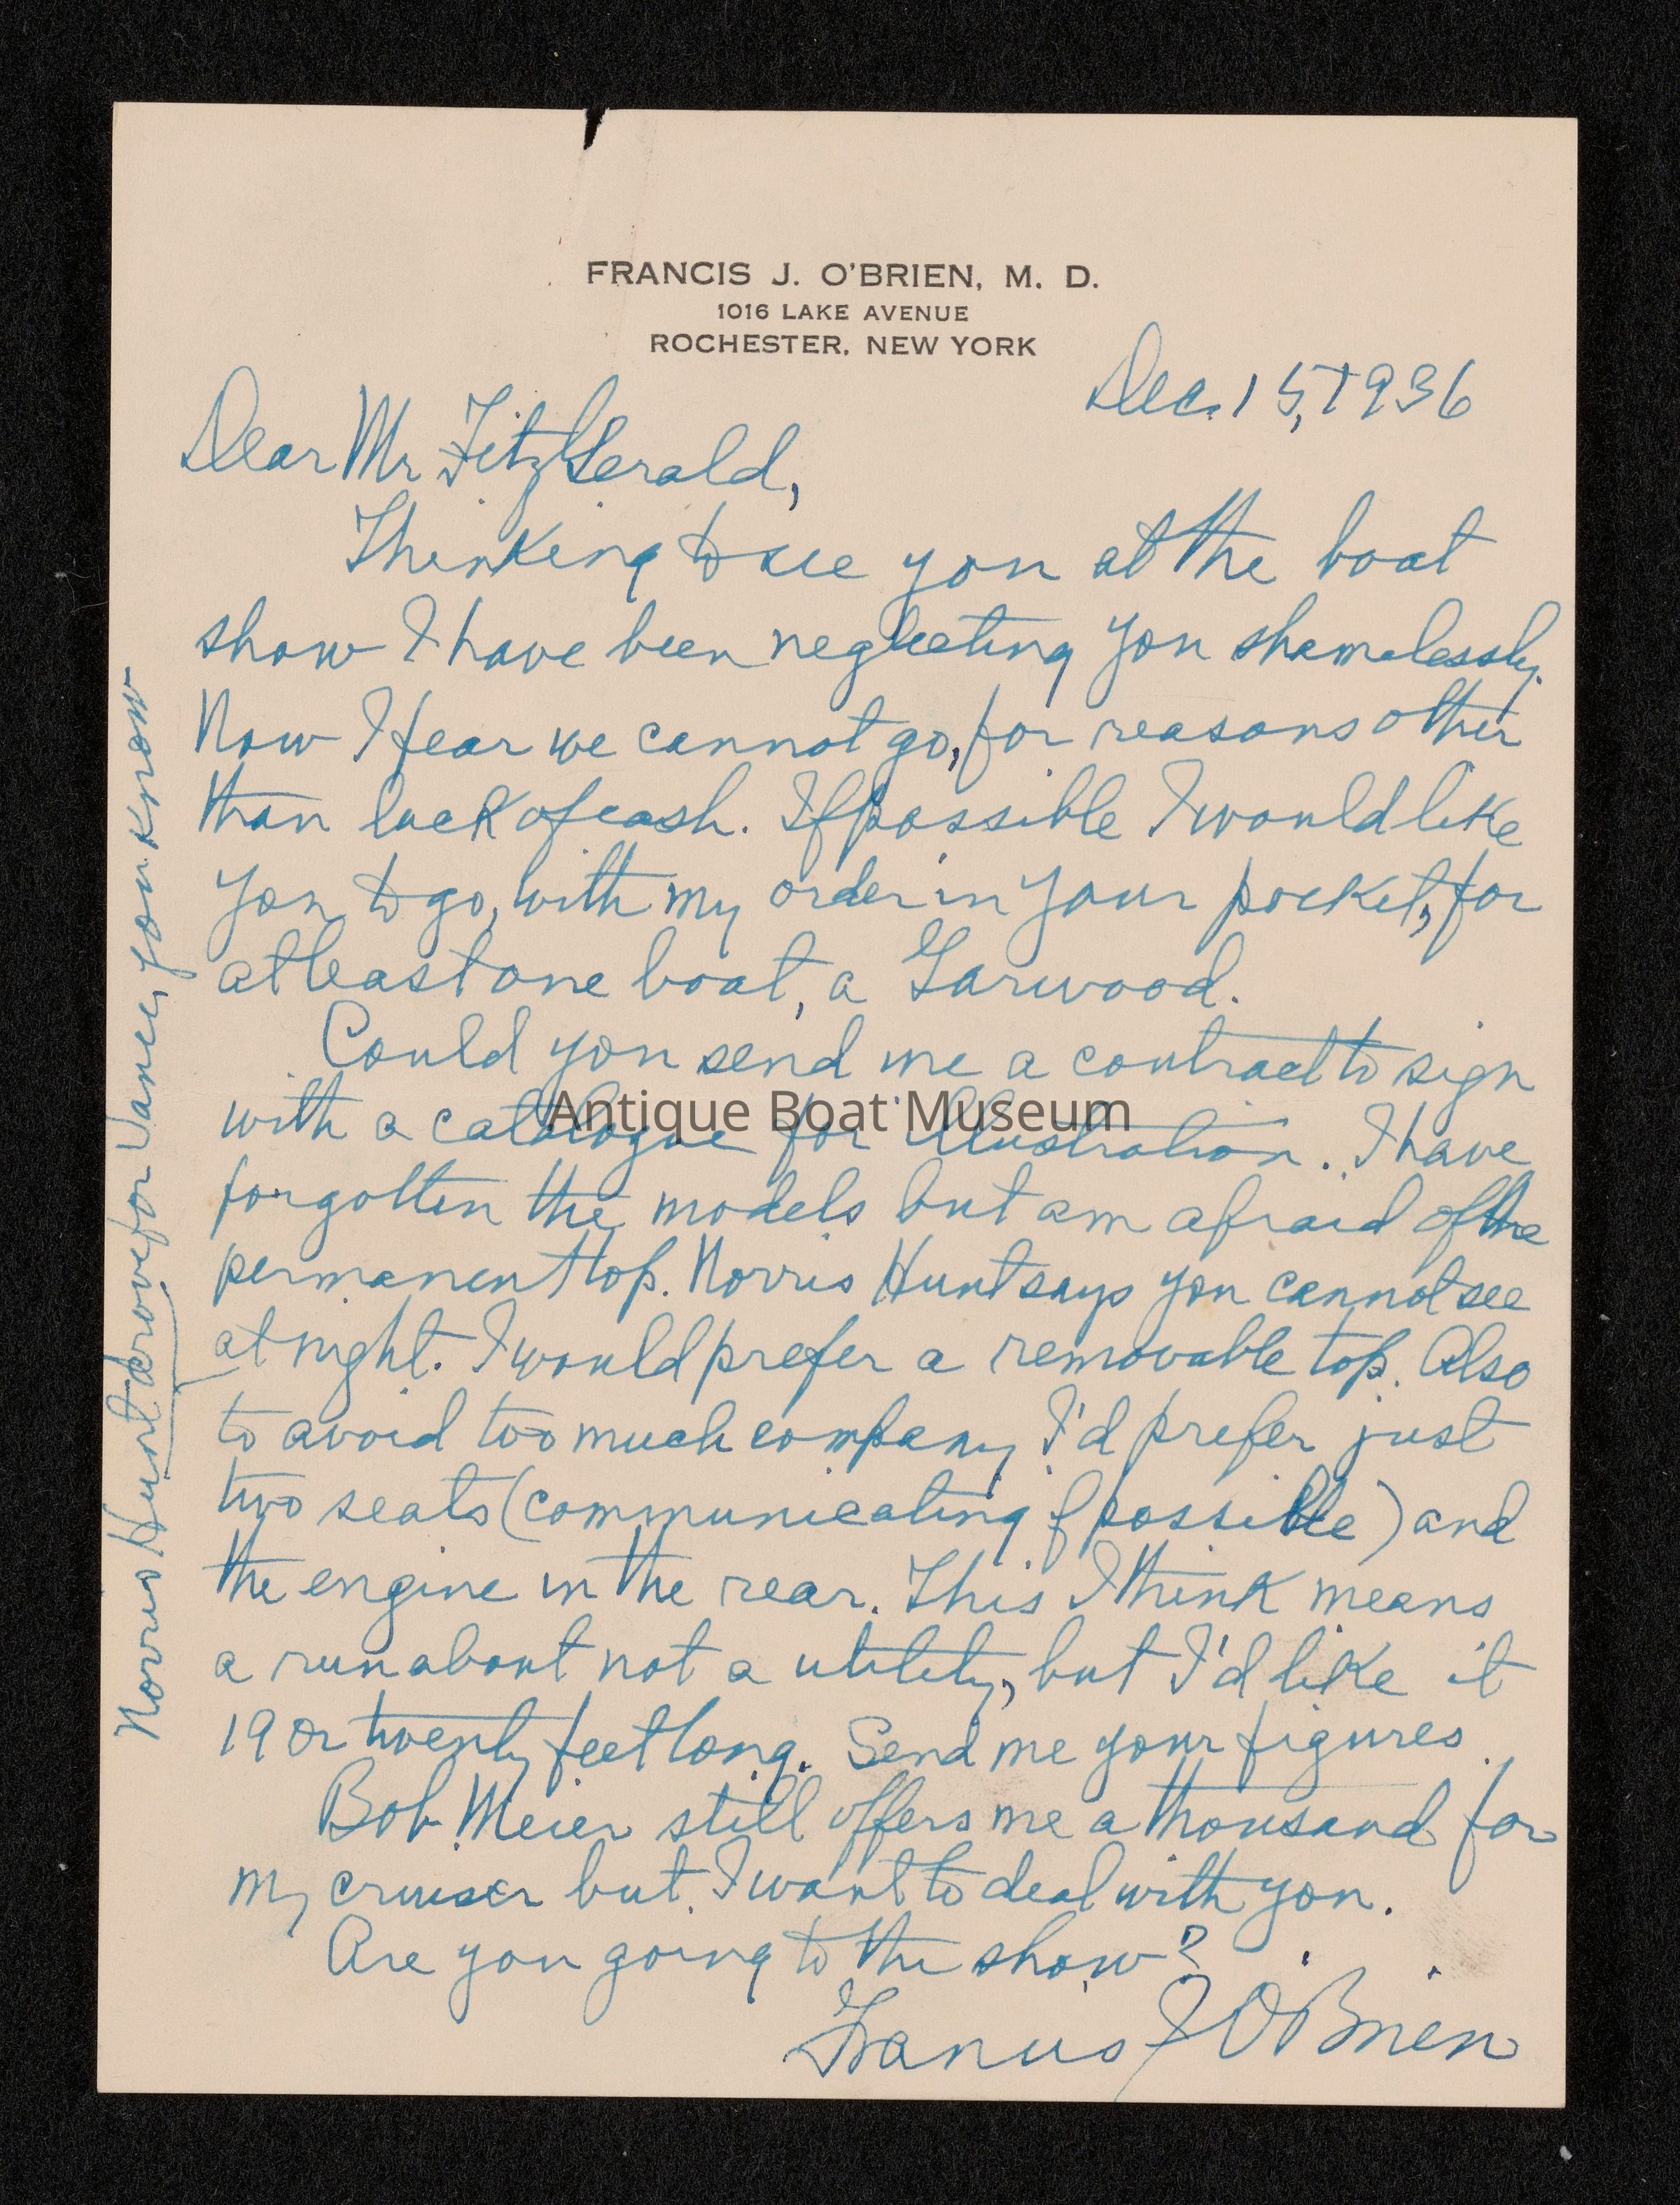 FRANCIS J. O'BRIEN, M. D.
1016 LAKE AVENUE
ROCHESTER, NEW YORK
Dec. 15, 1936
Dear Mr FitzGerald,
Thinking to see you at the boat
show I have been neglecting you shamelessly.
Now I fear we cannot go, for reasons other
than lack of cash. If possible I would like
you to go, with my order in your pocket, for
at least one boat, a Garwood.
Could you send me a contract to sign
with a catalogue for illustration. I have
Antique Boat Museum
forgotten the models but am afraid of the
permanent top. Norris Hunt says you cannot see
at night. I would prefer a removable top. Also
to avoid too much company I'd prefer just
two seats (communicating if possible) and
the engine in the rear. This I think means
a runabout not a utility, but I'd like it
19 or twenty feet long. Send me your figures.
Bob Meier still offers me a thousand for
my cruiser but I want to deal with you.
Are you going to the show?
Francis J O'Brien
Norris Hunt drove for Vance, you know